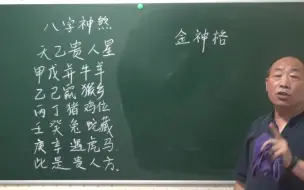 八字神煞
天乙贵人星
甲戊并牛羊
乙己鼠猴乡
丙丁猪鸡位
壬癸兔蛇藏
庚辛遇虎马
此是贵人方.
金神格